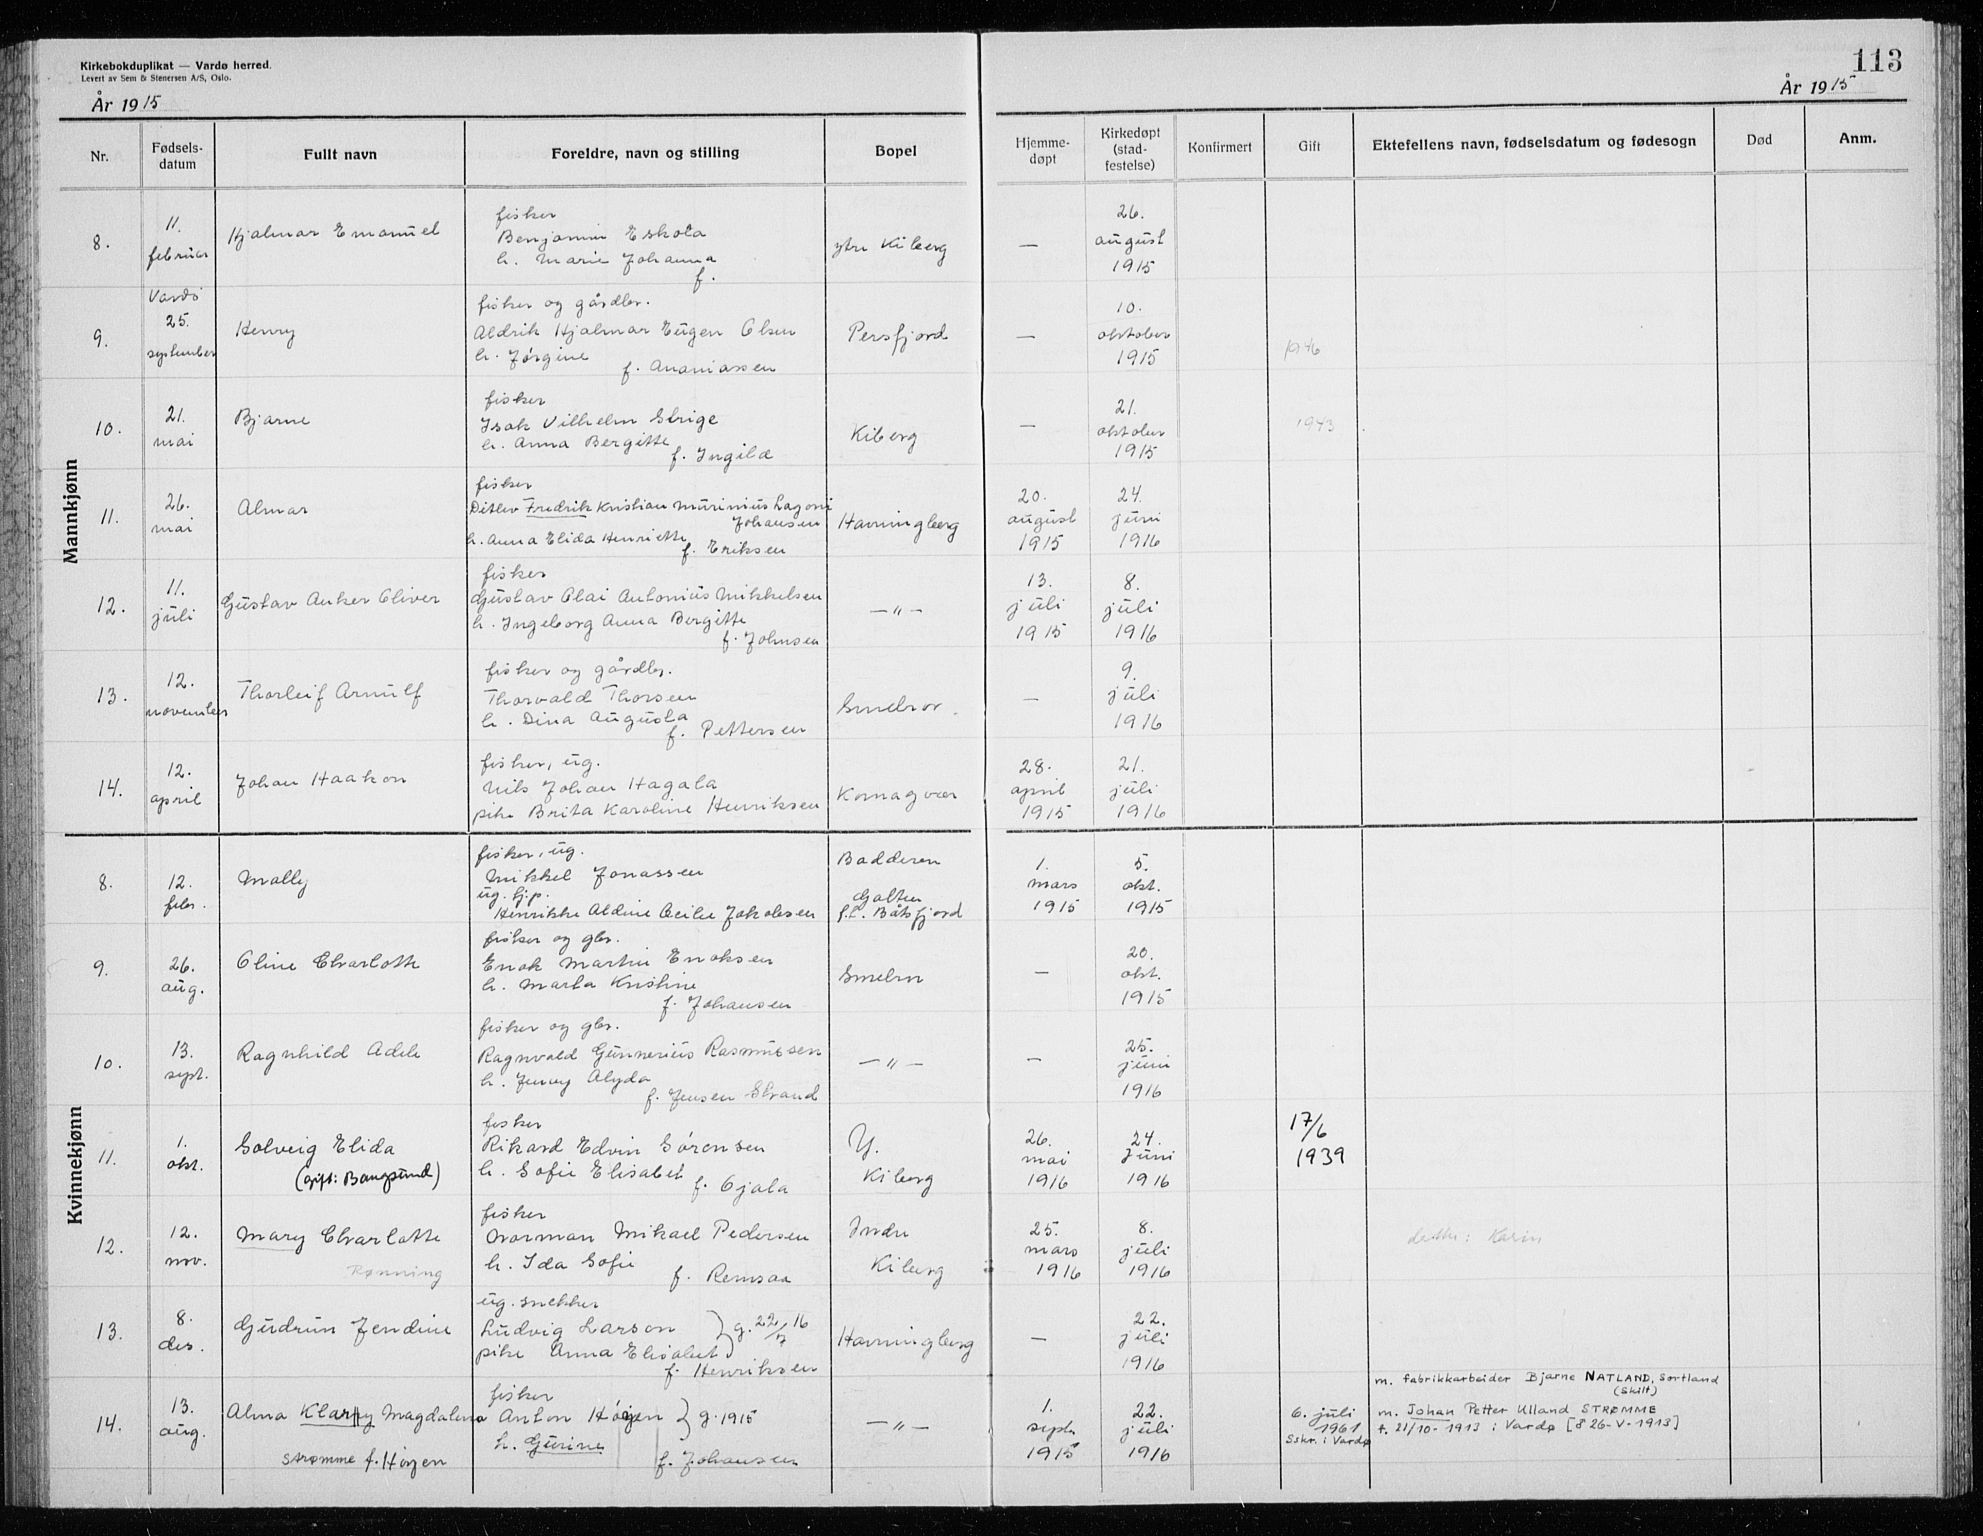 Kirkebokduplikat — Vardø herred.
Levert av Sem & Stenersen A/S, Oslo.
År 1915
113
År 1915
Nr.
Fødsels-
datum
Fullt navn
Foreldre, navn og stilling
Bopel
Hjemme-
døpt
Kirkedøpt
(stad-
festelse)
Konfirmert
Gift
Ektefellens navn, fødselsdatum og fødesogn
Død
Anm.
Mannkjønn
8.
11.
februar
Hjalmar Emanuel
fisker
Benjamin Eskola
h. Marie Johanna
f.
ytre Kiberg
—
26.
august
1915
9.
Vardø
25.
september
Henry
fisker og gårdbr.
Aldrik Hjalmar Eugen Olsen
h. Jørgine
f. Ananiassen
Persfjord
—
10.
oktober
1915
1946
10.
21.
mai
Bjarne
fisker
Isak Vilhelm Strige
h. Anna Bergitte
f. Ingilæ
Kiberg
—
21.
oktober
1915
1943
11.
26.
mai
Almar
fisker
Ditlev Fredrik Kristian Marinius Lagoni
Johansen
h. Anna Elida Henriette
f. Eriksen
Havningberg
20.
august
1915
24.
juni
1916
12.
11.
juli
Gustav Anker Oliver
fisker
Gustav Olai Antonius Mikkelsen
h. Ingeborg Anna Bergitte
f. Johnsen
—"—
13.
juli
1915
8.
juli
1916
13.
12.
november
Thorleif Arnulf
fisker og gårdbr.
Thorvald Thorsen
h. Dina Augusta
f. Pettersen
Smelror
—
9.
juli
1916
14.
12.
april
Johan Haakon
fisker, ug.
Nils Johan Hagala
pike Brita Karoline Henriksen
Komagvær
28.
april
1915
21.
juli
1916
Kvinnekjønn
8.
12.
febr.
Mally
fisker, ug.
Mikkel Jonassen
ug. hj.p.
Henrikke Aldine Cecilie Jakobsen
Badderen
Galten
f.t. Båtsfjord
1.
mars
1915
5.
okt.
1915
9.
26.
aug.
Oline Charlotte
fisker og gbr.
Enok Martin Enoksen
h. Marta Kristine
f. Johansen
Smelror
—
20.
okt.
1915
10.
13.
sept.
Ragnhild Adele
fisker og gbr.
Ragnvald Gunnerius Rasmussen
h. Jenny Alyda
f. Jensen Strand
—"—
—
25.
juni
1916
11.
1.
okt.
Solveig Elida
(gift: Bangsund)
fisker
Rikard Edvin Sørensen
h. Sofie Elisabet
f. Ojala
Y.
Kiberg
26.
mai
1916
24.
Juni
1916
17/6
1939
12.
12.
nov.
Mary Charlotte
Rønning
fisker
Norman Mikael Pedersen
h. Ida Sofie
f. Remsaa
Indre
Kiberg
25.
mars
1916
8.
juli
1916
datter: Karin
13.
8.
des.
Gudrun Jendine
ug. snekker
Ludvig Larson
pike Anna Elisabet } g. 22/7 16
f. Henriksen
Havningberg
—
22.
juli
1916
14.
13.
aug.
Alma Klarry Magdalena
Strømme f. Høyen
fisker
Anton Høyen } g. 1915
h. Gurine
f. Johansen
—"—
1.
sept.
1915
22.
juli
1916
6. juli
1961
Sskr. i Vardø
m. fabrikkarbeider Bjarne NATLAND, Sortland
(Skilt)
m. Johan Petter Ulland STRØMME
f. 21/10-1913 i Vardø [8 26-V-1913]